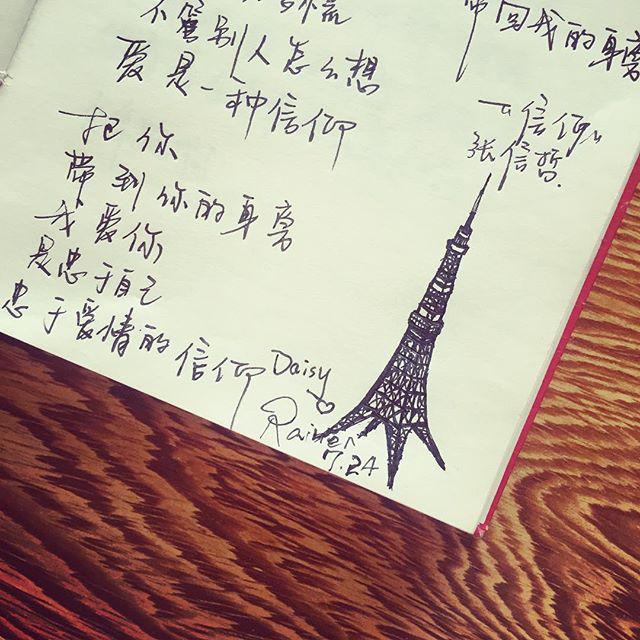 不管别人怎么想
爱是一种信仰
把你
带到你的身旁
我爱你
是忠于自己
忠于爱情的信仰
带回我的身旁
“信仰”
张信哲.
Daisy
7.24